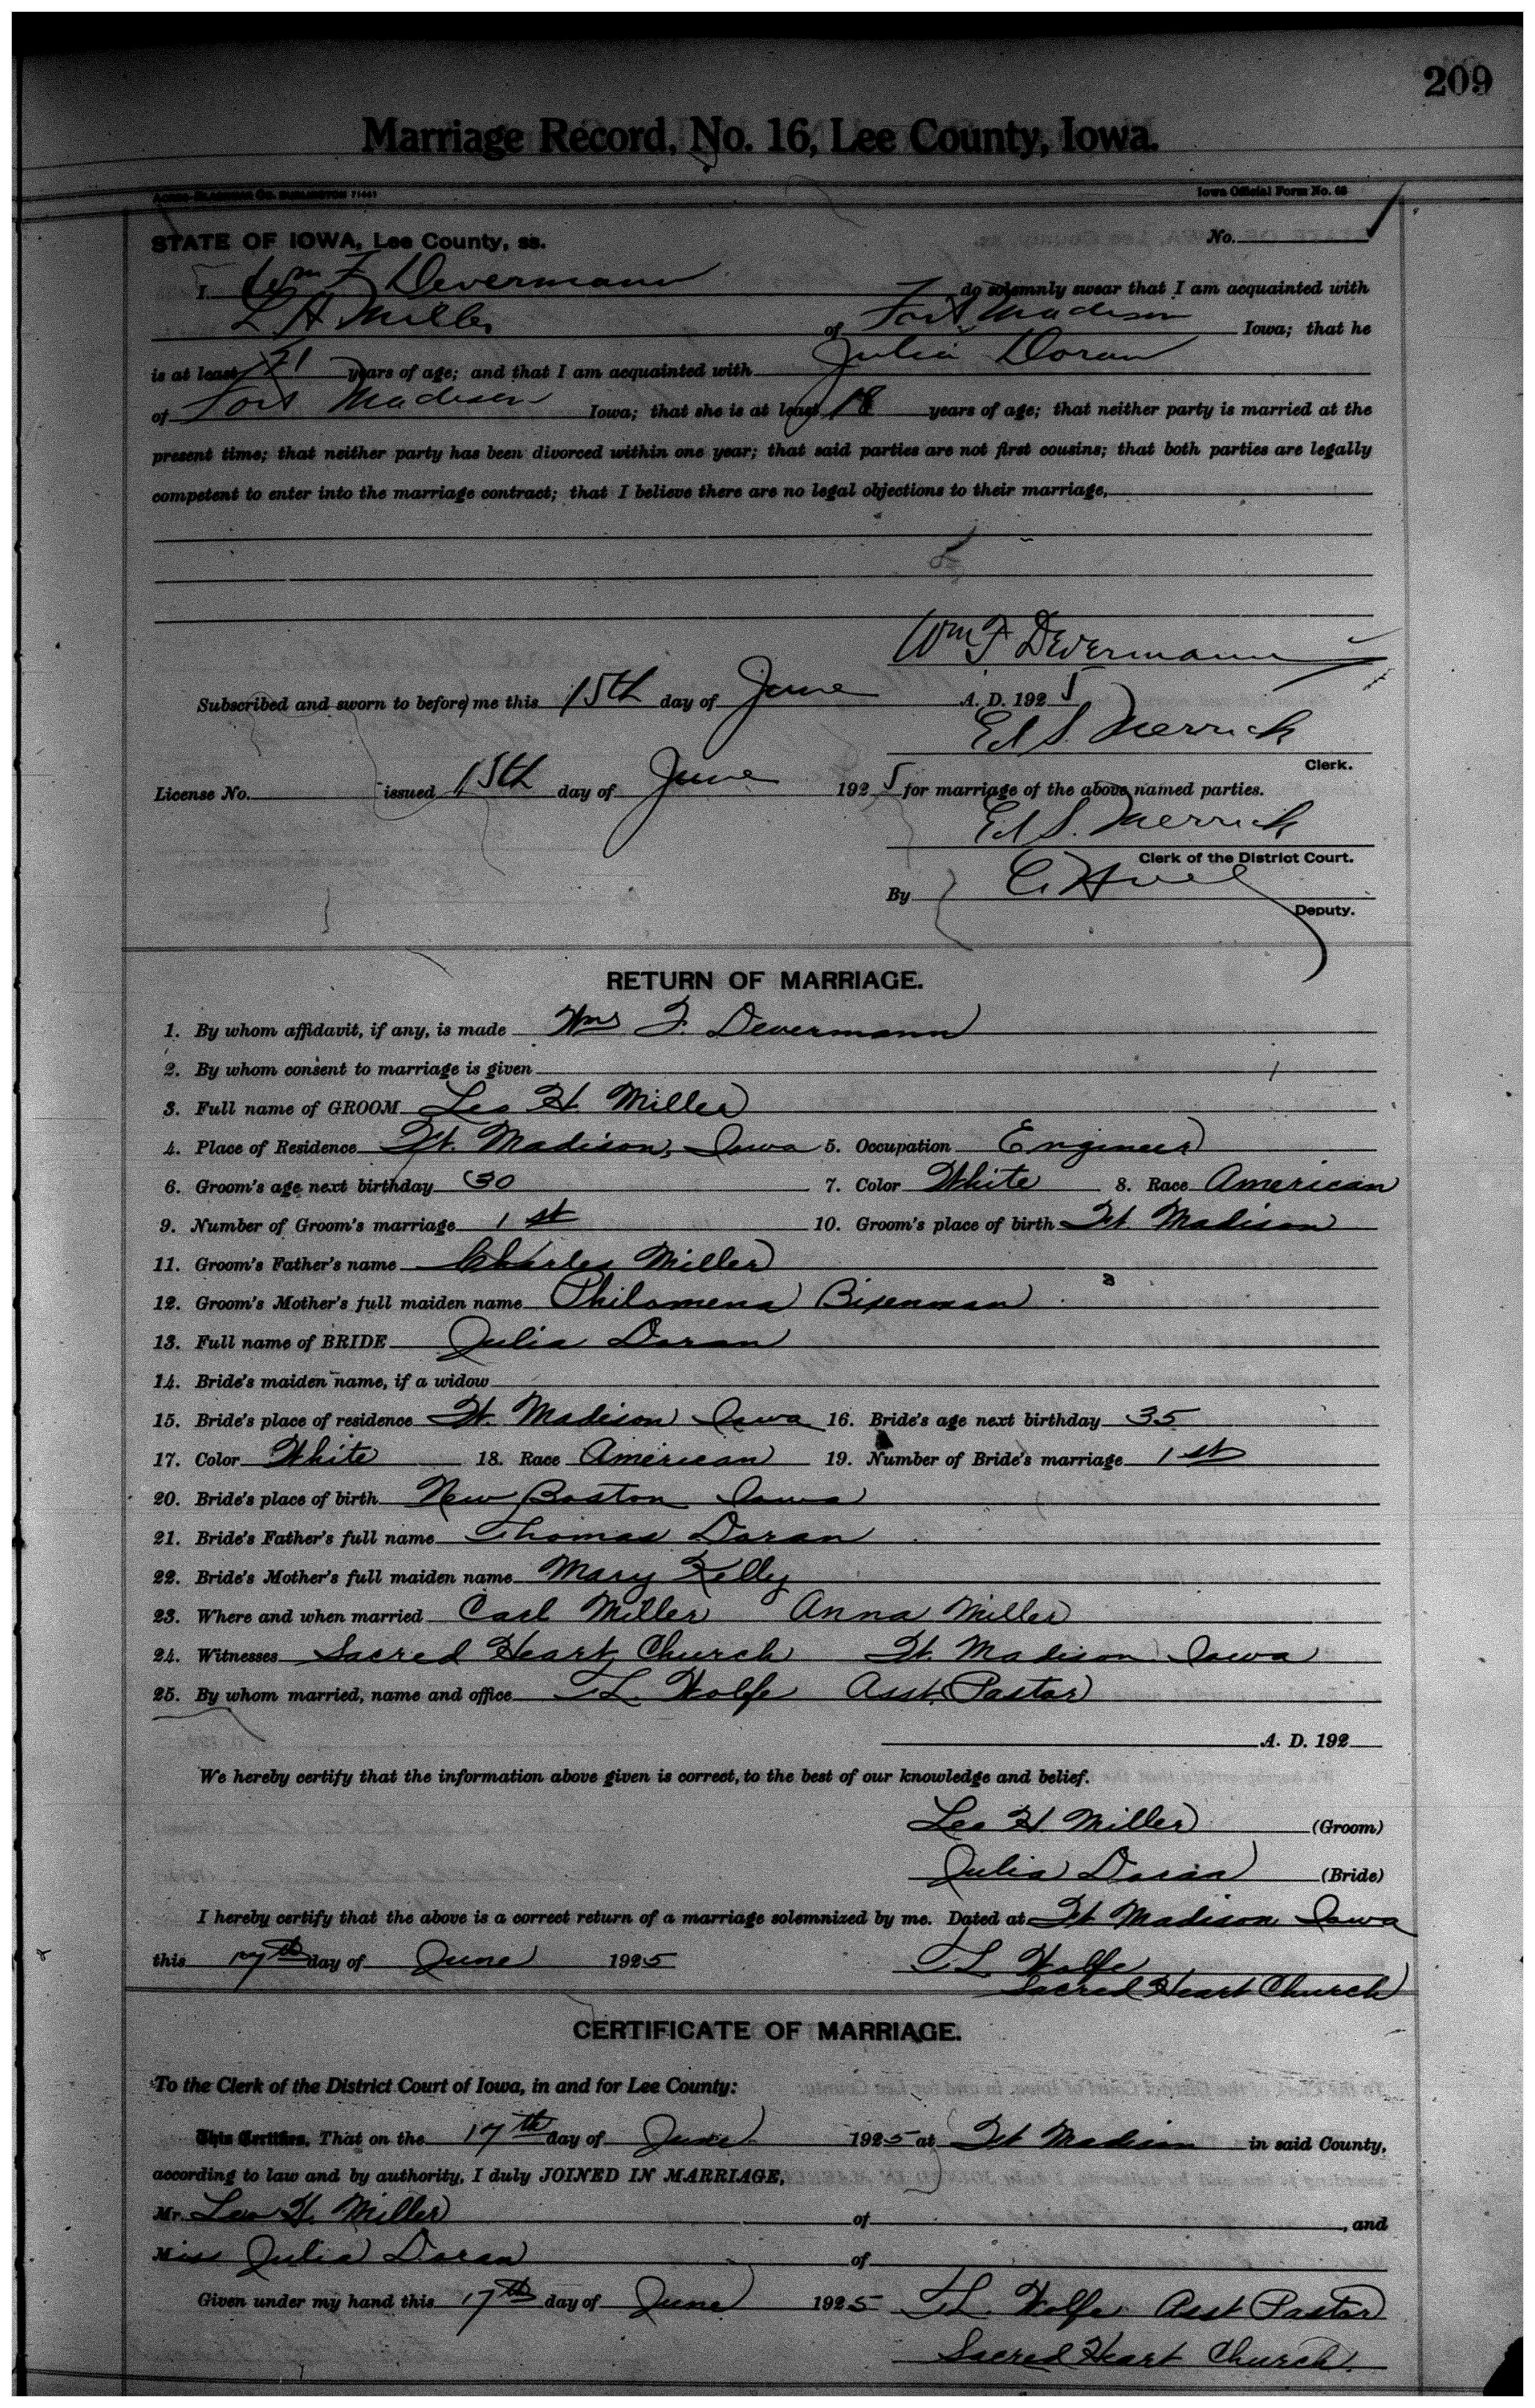 209
Marriage Record, No. 16, Lee County, Iowa.
Iowa Official Form No. 68
STATE OF IOWA, Lee County, ss. No.
I Wm F Devermann do solemnly swear that I am acquainted with
L H Miller of Fort Madison Iowa; that he
is at least 21 years of age; and that I am acquainted with Julia Doran
of Fort Madison Iowa; that she is at least 18 years of age; that neither party is married at the
present time; that neither party has been divorced within one year; that said parties are not first cousins; that both parties are legally
competent to enter into the marriage contract; that I believe there are no legal objections to their marriage,
Wm F Devermann
Subscribed and sworn to before me this 15th day of June A. D. 192 5
Ed S. Merrick
Clerk.
License No. issued 15th day of June 192 5 for marriage of the above named parties.
Ed S. Merrick
Clerk of the District Court.
By
Deputy.
RETURN OF MARRIAGE.
1. By whom affidavit, if any, is made Wm F. Devermann
2. By whom consent to marriage is given
3. Full name of GROOM Leo H. Miller
4. Place of Residence Ft. Madison, Iowa 5. Occupation Engineer
6. Groom's age next birthday 30 7. Color White 8. Race American
9. Number of Groom's marriage 1st 10. Groom's place of birth Ft. Madison
11. Groom's Father's name Charles Miller
12. Groom's Mother's full maiden name Philomena Bixenman
13. Full name of BRIDE Julia Doran
14. Bride's maiden name, if a widow
15. Bride's place of residence Ft. Madison Iowa 16. Bride's age next birthday 35
17. Color White 18. Race American 19. Number of Bride's marriage 1st
20. Bride's place of birth New Boston Iowa
21. Bride's Father's full name Thomas Doran
22. Bride's Mother's full maiden name Mary Kelly
23. Where and when married Carl Miller Anna Miller
24. Witnesses Sacred Heart Church Ft. Madison Iowa
25. By whom married, name and office T L. Wolfe Asst. Pastor
A. D. 192
We hereby certify that the information above given is correct, to the best of our knowledge and belief.
Leo H. Miller (Groom)
Julia Doran (Bride)
I hereby certify that the above is a correct return of a marriage solemnized by me. Dated at Ft Madison Iowa
this 17th day of June 1925 T L. Wolfe
Sacred Heart Church
CERTIFICATE OF MARRIAGE.
To the Clerk of the District Court of Iowa, in and for Lee County:
This Certifies, That on the 17th day of June 1925 at Ft Madison in said County,
according to law and by authority, I duly JOINED IN MARRIAGE,
Mr. Leo H. Miller of , and
Miss Julia Doran of
Given under my hand this 17th day of June 1925 T L. Wolfe Asst Pastor
Sacred Heart Church.